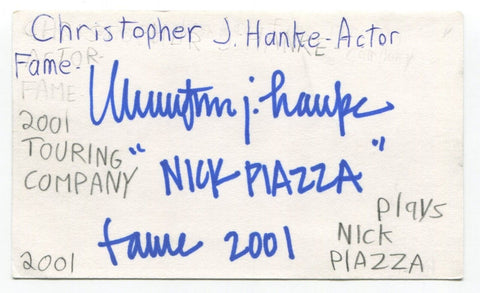 Christopher J. Hanke-Actor
ACTOR-
Fame-
FAME
Christopher j. hanke
2001
TOURING
COMPANY
"NICK PIAZZA"
plays
NICK
PIAZZA
fame 2001
2001